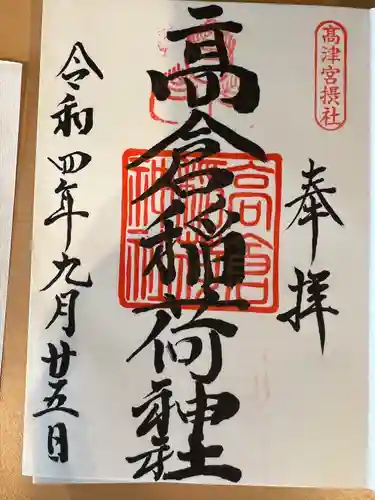 高津宮摂社
奉拝
高倉稲荷神社
高倉稲荷神社
令和四年九月廿五日